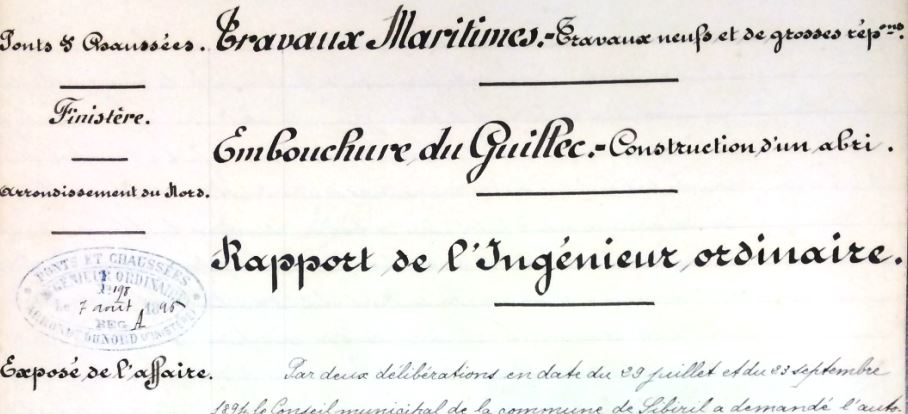 Ponts & Chaussées.
Travaux Maritimes.- Travaux neufs et de grosses rép.ons.
Finistère.
Embouchure du Guillec.- Construction d'un abri.
Arrondissement du Nord.
Rapport de l'Ingénieur ordinaire.
PONTS ET CHAUSSÉES
INGÉNIEUR ORDINAIRE
N° 198
Le 7 août 1895
REG A
ARROND. DU NORD (FINISTÈRE)
Exposé de l'affaire.
Par deux délibérations en date du 29 juillet et du 23 septembre
1894 le Conseil municipal de la commune de Sibiril a demandé l'auto-